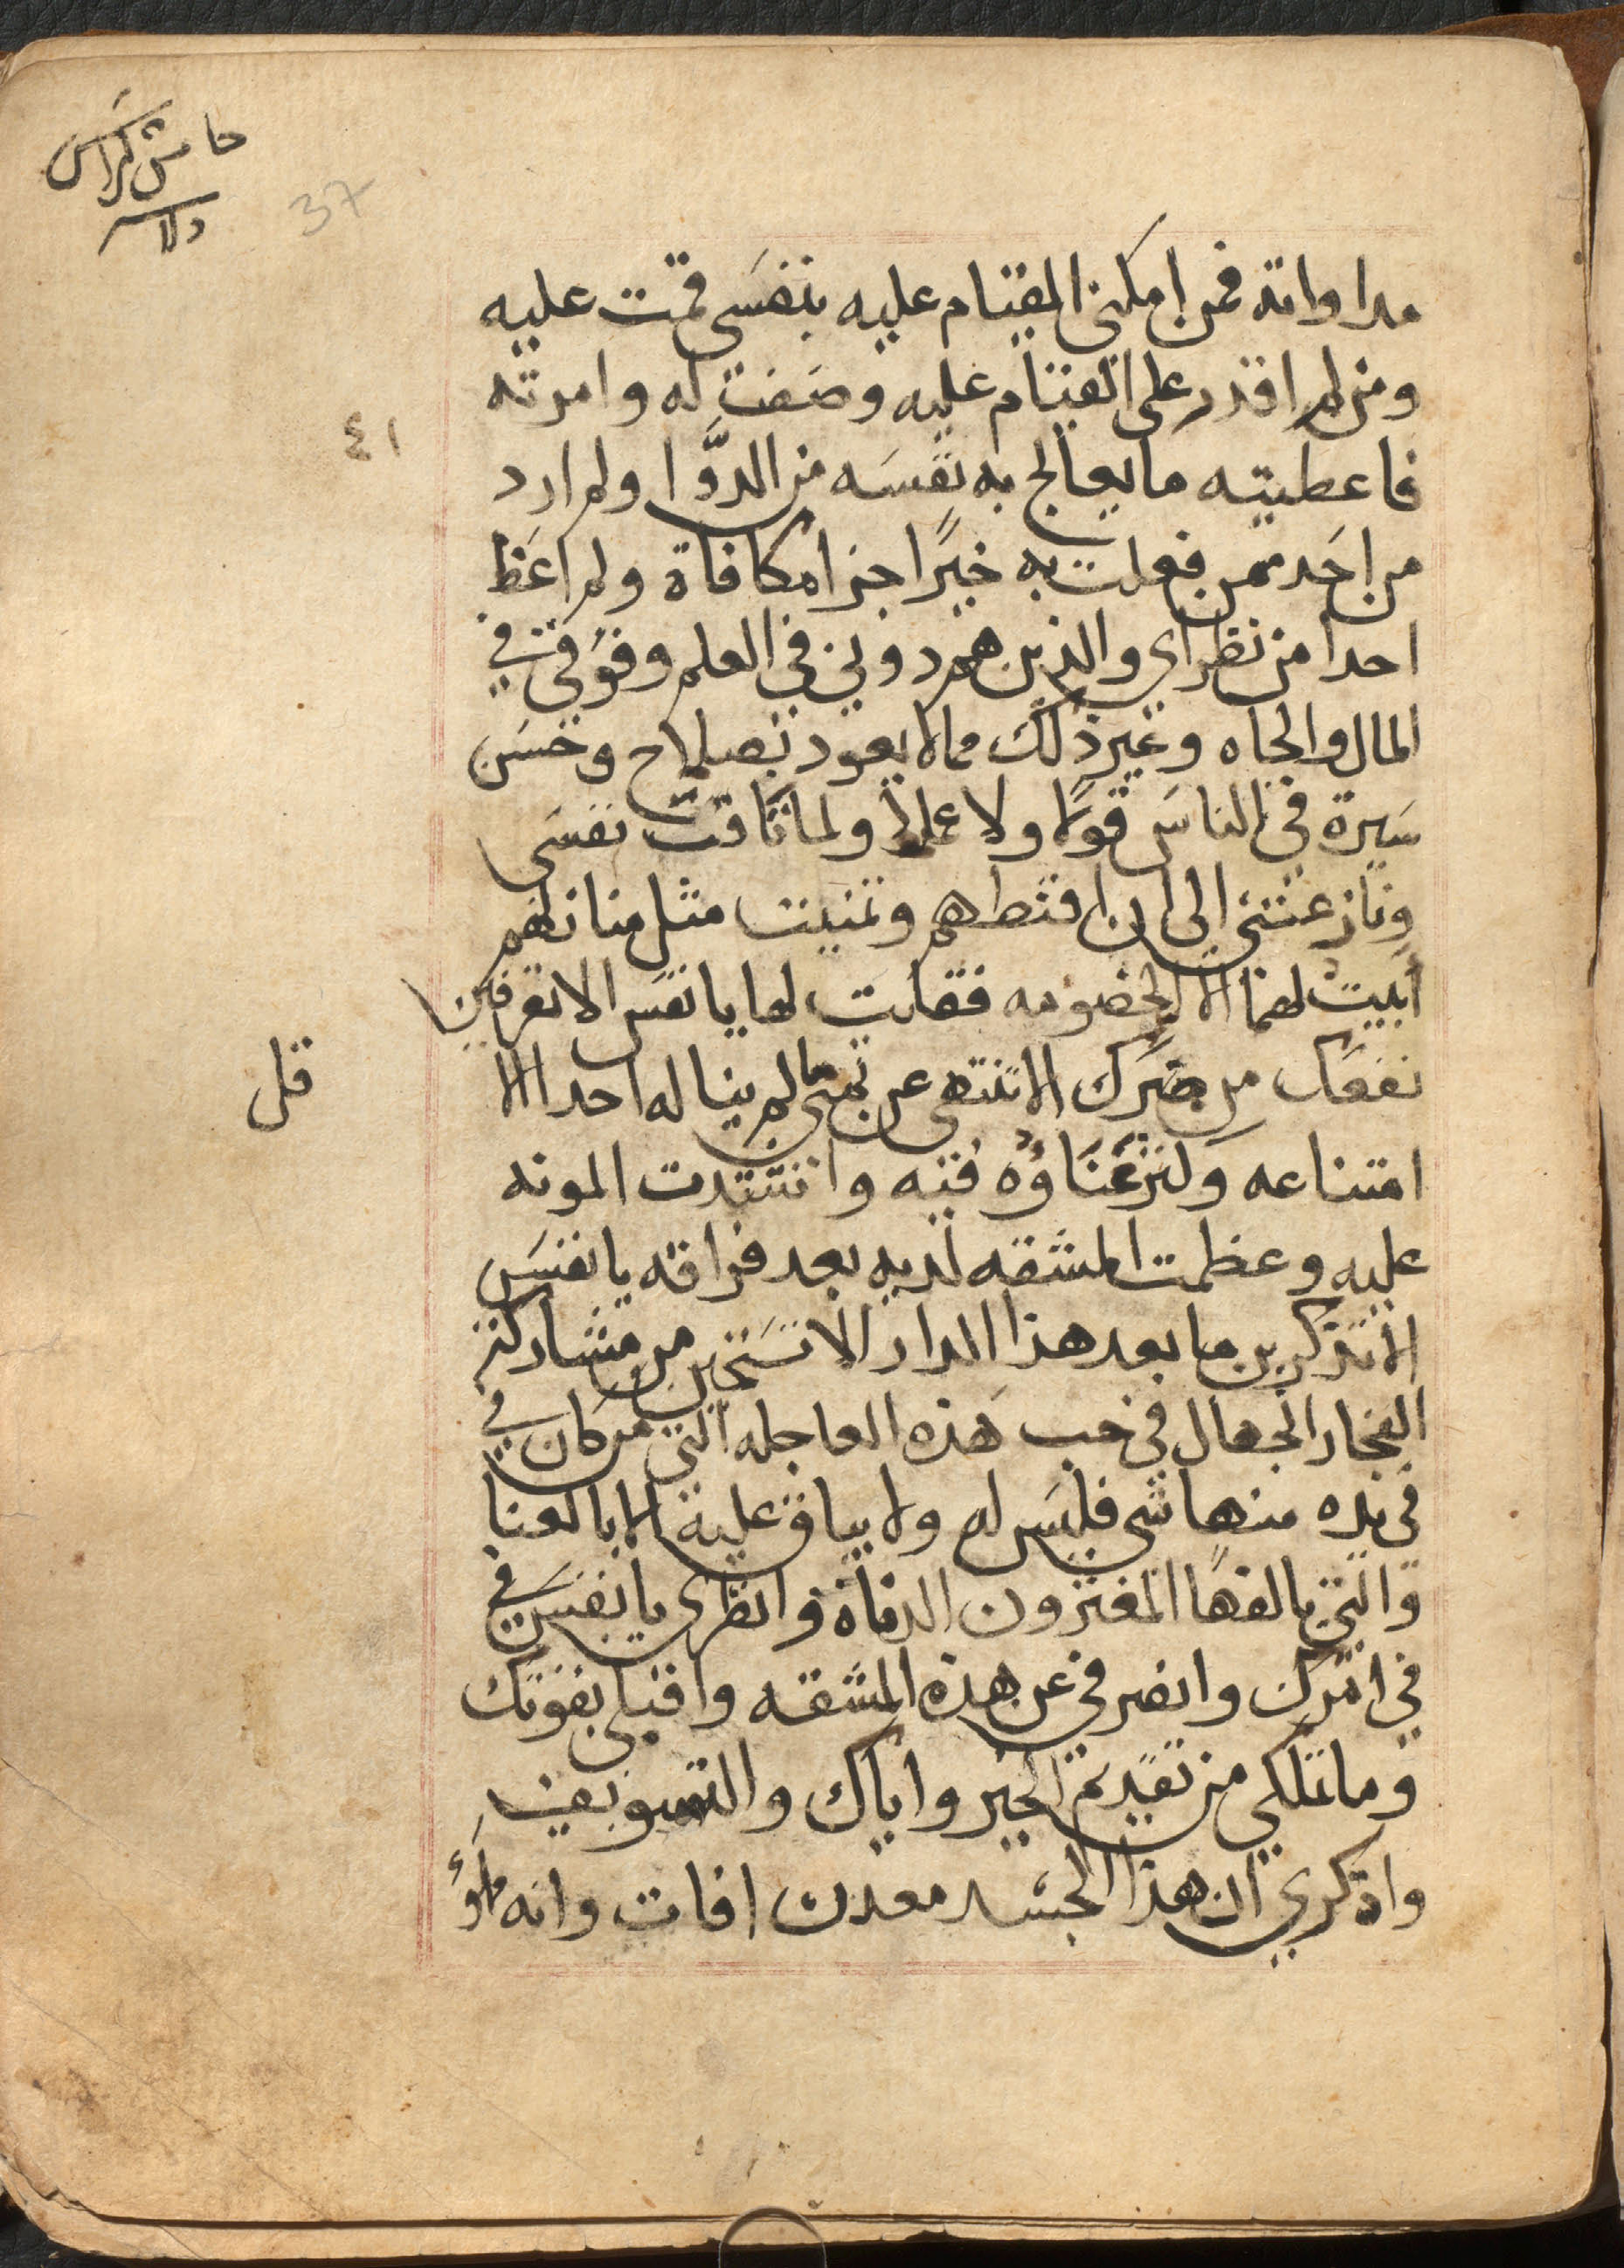 حامس كراس
37
٤١
مداواته فمن امكنى القيام عليه بنفسي قمت عليه
ومن لم اقدر على القيام عليه وصفت له وامرته
فاعطيته ما يعالج به نفسه من الدَّوا ولم ارد
من احد ممن فعلت به خيرًا جزا مكافاة ولم اغظ
احدا من نظراى والذين هم دونى في العلم وفوقى في
المال والجاه وغير ذلك مما لا يعود بصلاح وحسن
سيرة في الناس قولا ولا عملا ولما تاقت نفسى
ونازعتنى الى ان اغتطهم وتمنيت مثل منازلهم
ابيت لهما الا الخصومه فقلت لها يا نفس الا تعرفين
نفعك من ضرك الا تنتهى عن تمنى ما لم يناله احد الا
قل
امتناعه وكثر عَنَاوُه فيه واشتدت المونه
عليه وعظمت المشقه لديه بعد فراقه يا نفس
الا تذكرين ما بعد هذا الدار الا تستحين من مشاركة
الفجار الجهال في حب هذه العاجله التى من كان في
في يده منها شى فليس له ولا بباق عليه الا بالعنا
والتى يالفها المغترون الدناة وانظرى يا نفس في
في امرك وانصرفى عن هذه المشقه واقبلى بقوتك
وما تملكي من تقديم الخير واياك والتسويف
واذكري ان هذا الجسد معدن افات وانه ملوُ